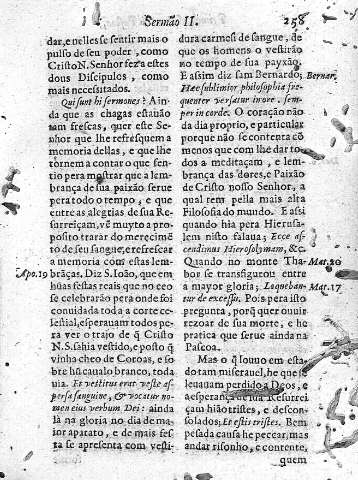 Sermão II. 258
dar, e nelles se sentir mais o
pulso de seu poder, como
Cristo N. Senhor fez a estes
dous Discipulos, como
mais necessitados.
Qui sunt hi sermones? Ain-
da que as chagas estauão
tam frescas, quer este Se-
nhor que lhe refresquem a
memoria dellas, & que lhe
tornem a contar o que sen-
tio pera mostrar que a lem-
brança de sua paixão serue
pera todo o tempo, & que
entre as alegrias de sua Re-
surreiçam, vẽ muyto a pro-
posito tratar do merecimẽ
to de seu sangue, e refrescar
a memoria com estas lem-
Apo. 19 brãças. Diz S. Ioão, que em
hũas festas reais que no ceo
se celebrarão pera onde foi
conuidada toda a corte ce-
lestial, esperauam todos pe-
ra ver o trajo de q̃ Cristo
N.S. sahia vestido, e posto q̃
vinha cheo de Coroas, e so-
bre hũ caualo branco, toda
uia. Et vestitus erat veste as-
persa sanguine, & vocatur no-
men eius verbum Dei: ainda
là na gloria no dia de ma-
ior aparato, e de mais fes-
ta se apresenta com vesti-
dura carmesi de sangue, de
que os homens o vestirão
no tempo de sua payxão.
E assim diz sam Bernardo; Bernar.
Hæc sublimior philosophia fre-
quenter versatur in ore, sem-
per in corde. O coração não
da dia proprio, e particular
porque não se contenta cõ
menos que com lhe dar to-
dos a meditaçam, e lem-
brança das dores, e Paixão
de Cristo nosso Senhor, a
qual tem pella mais alta
Filosofia do mundo. E assi
quando hia pera Hierusa-
lem nisto falaua; Ecce as-
cendimus Hierosolymam, &c.
Quando no monte Tha- Mat. 20
bor se transfigurou entre
a mayor gloria; Loqueban- Mat. 17
tur de excessu. Pois pera isto
pregunta, porq̃ quer ouuir
rezoar de sua morte, e he
pratica que serue ainda na
Pascoa.
Mas o q̃ louuo em esta-
do tam miserauel, he que si
leuauam perdido a Deos, e
a esperança de sua Resurrei
çam hião tristes, e descon-
solados; Et estis tristes. Bem
pesada causa he peccar, mas
andar risonho, e contente,
quem